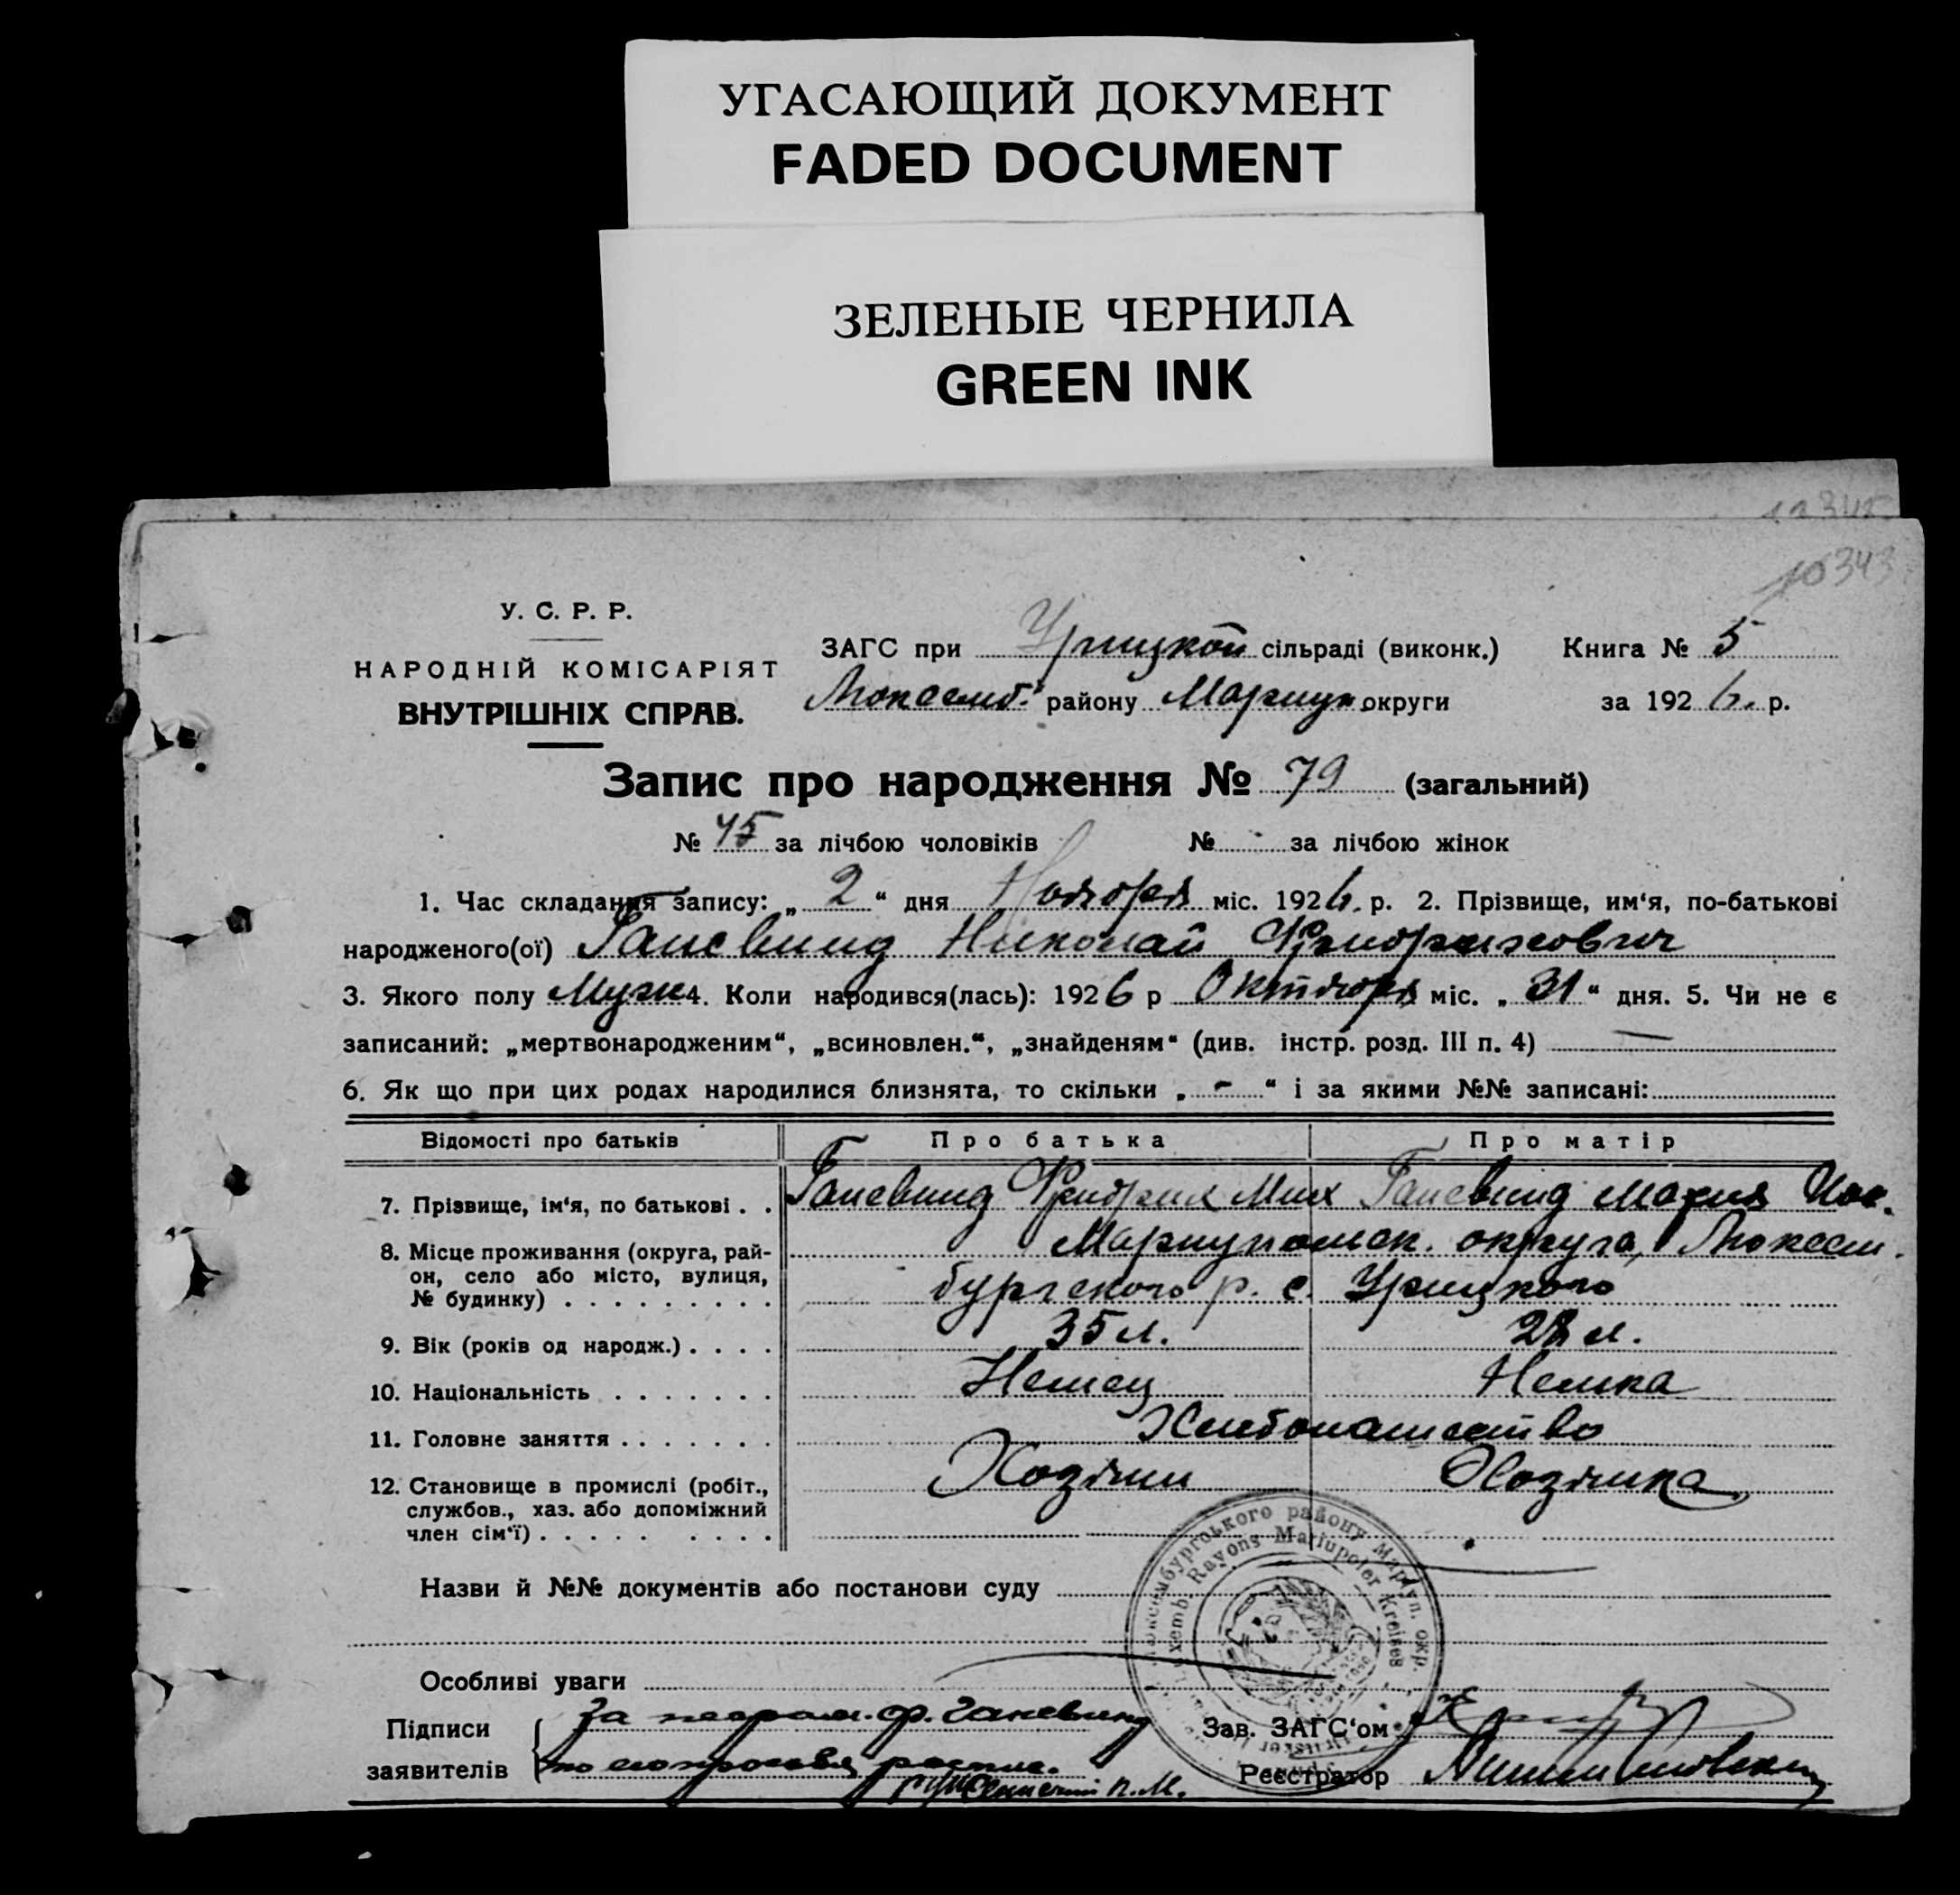 УГАСАЮЩИЙ ДОКУМЕНТ
FADED DOCUMENT
ЗЕЛЕНЫЕ ЧЕРНИЛА
GREEN INK
10343
У. С. Р. Р.
НАРОДНІЙ КОМІСАРІЯТ
ВНУТРІШНІХ СПРАВ.
ЗАГС при Урицкой сільраді (виконк.) Книга № 5
Люксемб. району Мариуп. округи за 1926. р.
Запис про народження № 79 (загальний)
№ 45 за лічбою чоловіків № - за лічбою жінок
1. Час складання запису: „ 2 “ дня Ноября міс. 1926. р. 2. Прізвище, им‘я, по-батькові
народженого(ої) Ганевинд Николай Фридрихович
3. Якого полу Муж 4. Коли народився(лась): 1926 р Октября міс. „ 31 “ дня. 5. Чи не є
записаний: „мертвонародженим“, „всиновлен.“, „знайденям“ (див. інстр. розд. III п. 4) —
6. Як що при цих родах народилися близнята, то скільки „ - “ і за якими №№ записані:
Відомості про батьків Про батька Про матір
7. Прізвище, ім‘я, по батькові . . Ганевинд Фридрих Мих Ганевинд Мария
8. Місце проживання (округа, рай- Мариупольск. округа, Люксем.
он, село або місто, вулиця, бургского р. с. Урицкого
№ будинку) . . . . . . . . .
9. Вік (років од народж.) . . . . 35 л. 28 л.
10. Національність . . . . . . . Немец Немка
11. Головне заняття . . . . . . . Хлебопашество
12. Становище в промислі (робіт., Хозяин Хозяйка
службов., хаз. або допоміжний
член сім‘ї) . . . . . . . . .
Назви й №№ документів або постанови суду
Особливі уваги
Підписи За неграм. ф. Ганевинд Зав. ЗАГС‘ом
заявителів по его просьбе распис. Реєстратор
п. М.
Люксембургського району Маріуп. окр.
Luxemb. Rayons Mariupoler Kreises